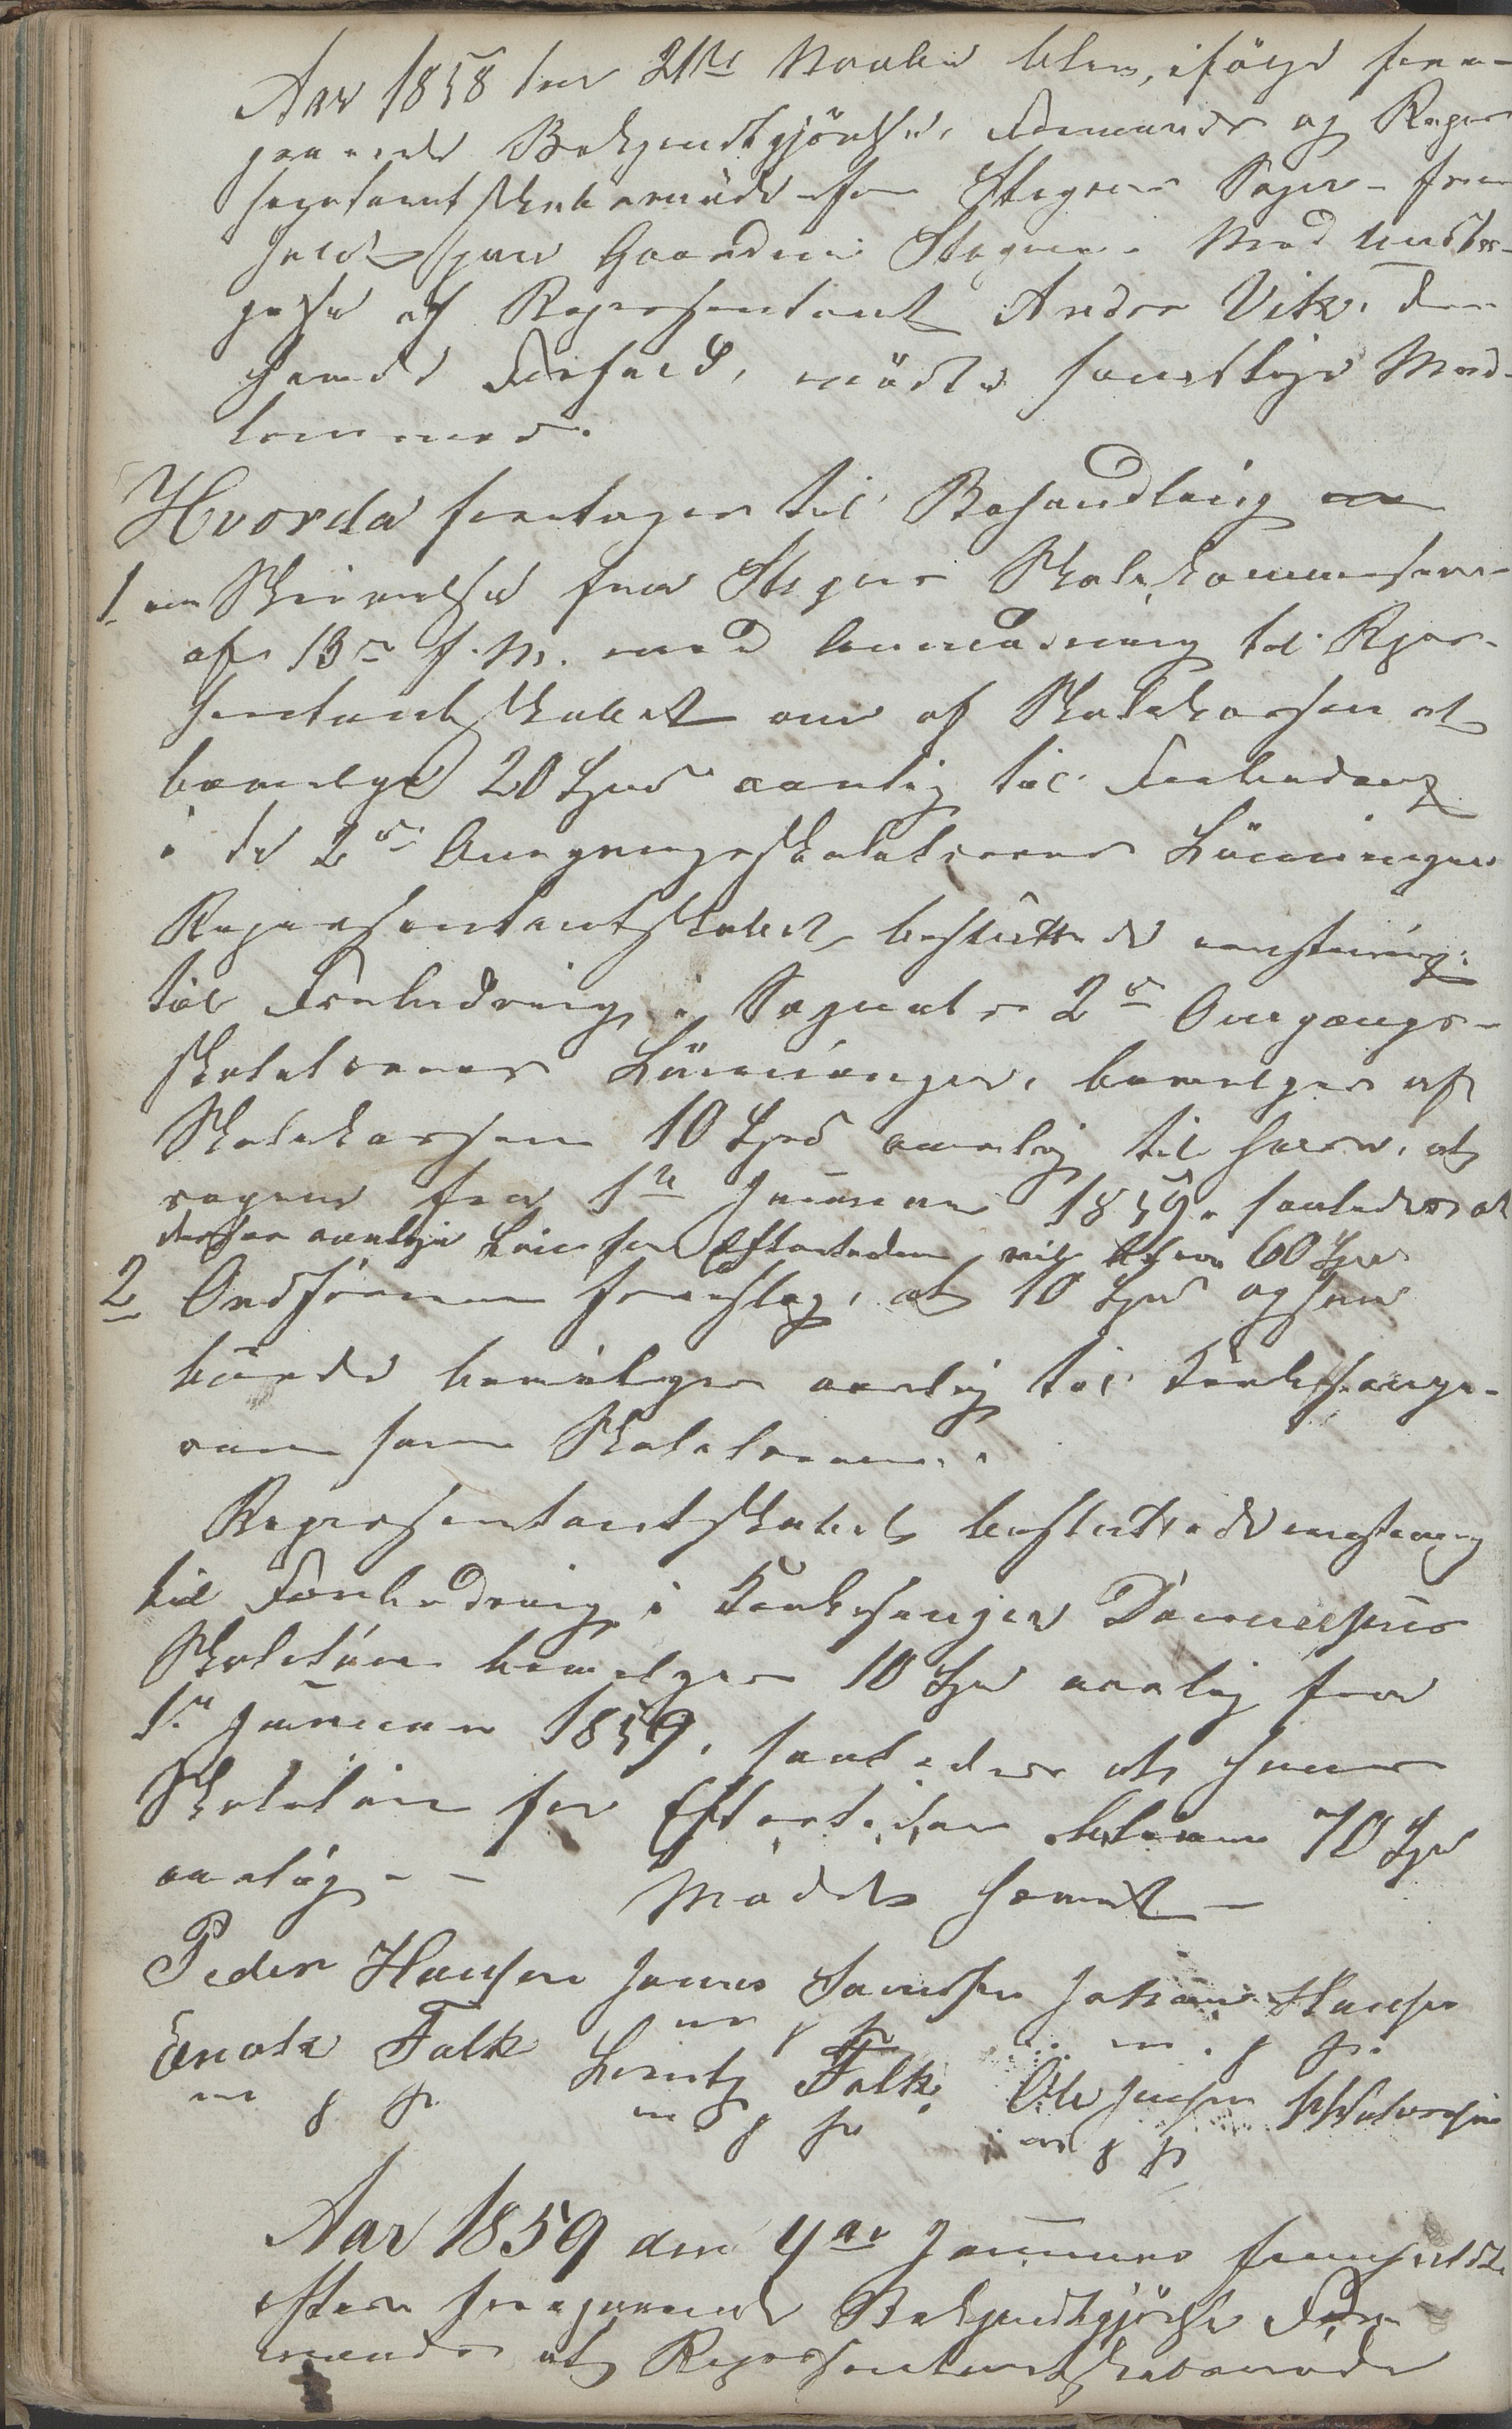 Aar 1858 den 21de Novbr blev, ifölge fore-
gaaende Bekjendtgjörelse, Formands og Repræ-
sentantskabsmöde for Stegens Sogn frem-
holdt paa Gaarden Stegen. Med Undta-
gelse af Repræsentant Andor Vik, der
havde Forfald, mödte samtlige Med-
lemmer.
Hvorda foretoges til Behandling
1 en Skrivelse fra Stegens Skolekommission
af 13de f. M. med Anmodning til Repræ-
sentantskabet om af Skolekassen at
bevilge 20 Spd aarlig til Forbedring
i de 2de Omgangsskolelæreres Lönninger
Repræsentantskabet besluttede eenstemmig:
til Forbedring i Sognets 2de Omgangs-
skolelæreres Lönninger, bevilges af
Skolekassen 10 Spd aarlig til hver, at
regne fra 1ste Januar 1859, saaledes at
deres aarlige Løn for Eftertiden vil blive 60 Spd.
2 Ordföreren foreslog, at 10 Spd ogsaa
burde bevilges aarlig til Kirkesange-
ren som Skolelærer.
Repræsentantskabet besluttede eenstemmig
til Forbedring i Kirkesanger Danielsens
Skolelön bevilges 10 Spd aarlig fra
1ste Januar 1859, saaledes at hans
Skolelön for Eftertiden bliver 70 Spd
aarlig. -
Mödet hævet -
Peder Hansen Jonas Davidsen Johan Hansen
m p p m. p p.
Enok Falk Lorentz Falk. Ole Jensen
m p p m p p m p p
Aar 1859 den 4de Januar fremholdtes
efter foregaaende Bekjendtgjörelse For-
mands og Repræsentantskabsmöde